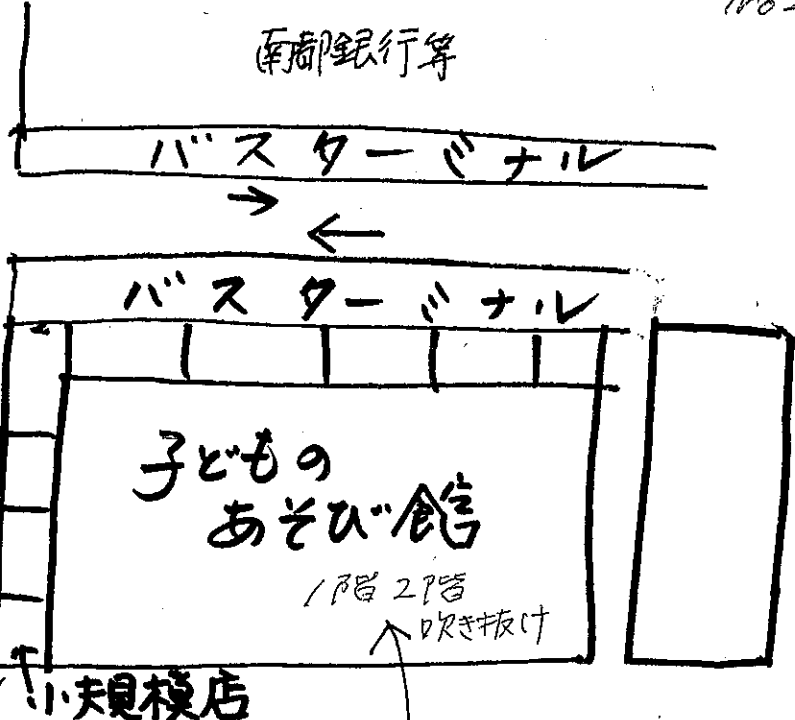 南都銀行等
バスターミナル
バスターミナル
子どもの
あそび館
1階 2階
吹き抜け
小規模店